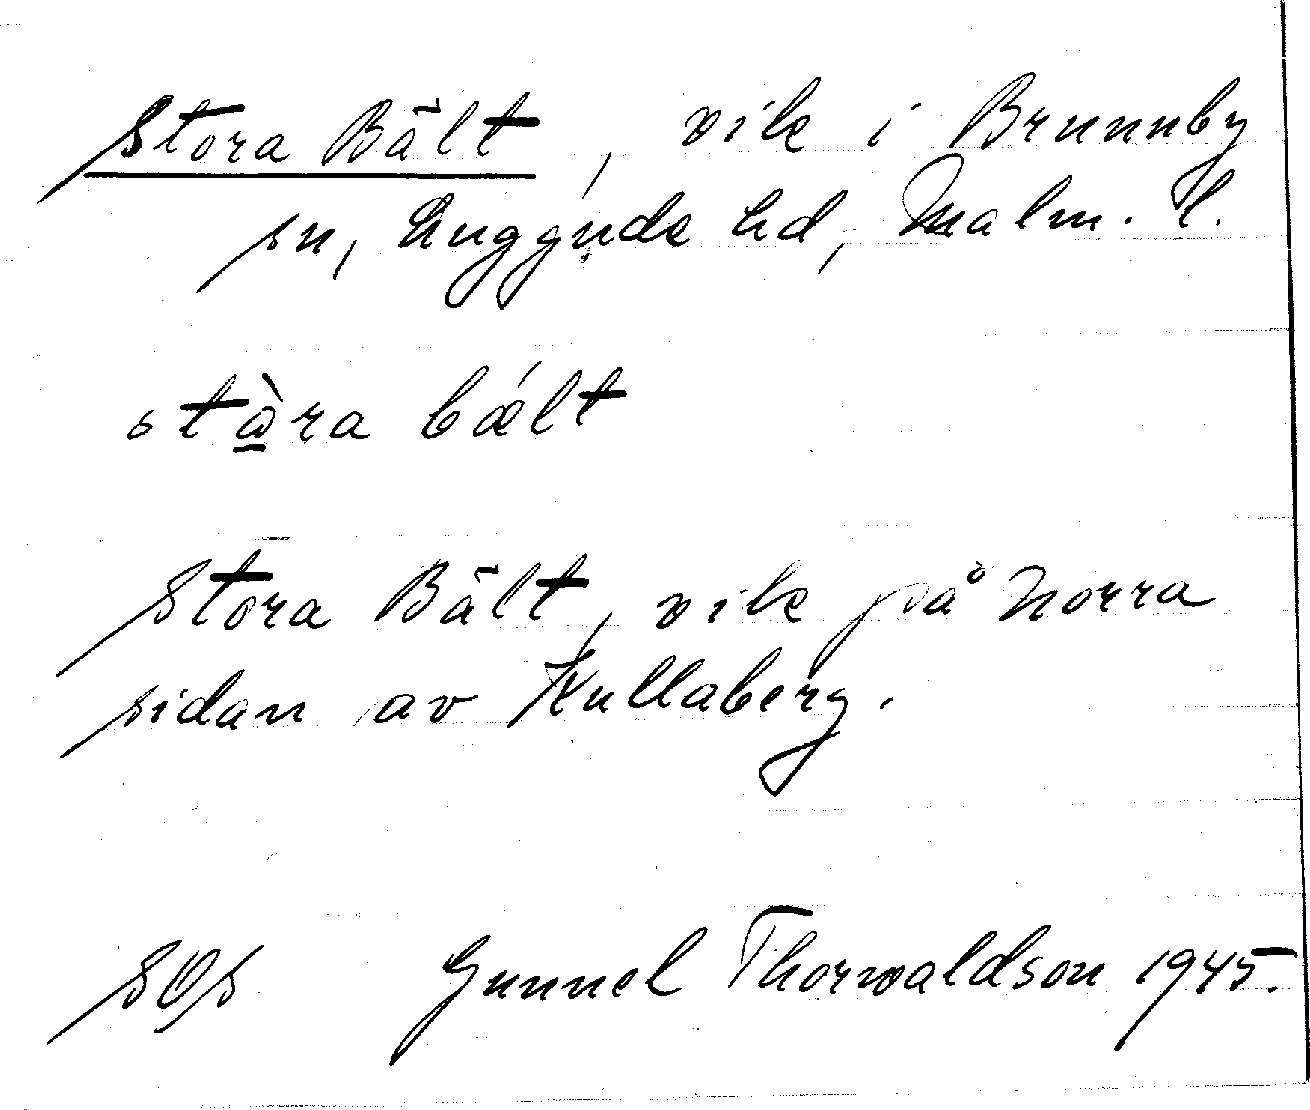 Stora Bält, vik i Brunnby
sn, Luggude hd, Malm. l.
stòra bǽlt
Stora Bält, vik på norra
sidan av Kullaberg.
SOS Gunnel Thorwaldson 1945.